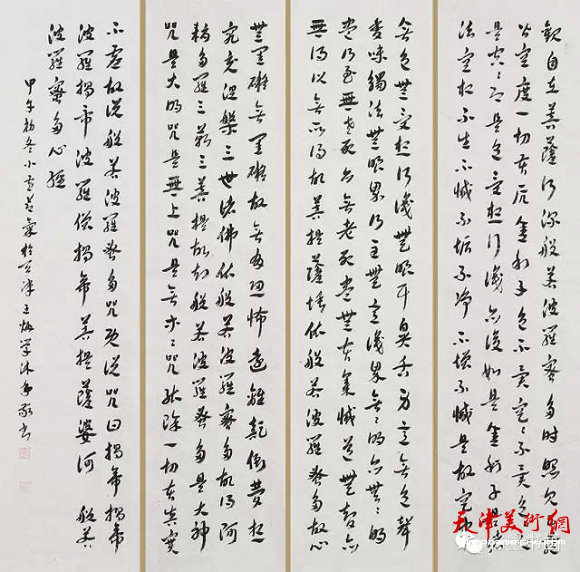 觀自在菩薩行深般若波羅蜜多時照見五蘊
皆空度一切苦厄舍利子色不異空空不異色色即
是空空即是色受想行識亦復如是舍利子是諸
法空相不生不滅不垢不净不增不減是故空中
無色無受想行識無眼耳鼻舌身意無色聲
香味觸法無眼界乃至無意識界無無明亦無無明
盡乃至無老死亦無老死盡無苦集滅道無智亦
無得以無所得故菩提薩埵依般若波羅蜜多故心
無罣礙無罣礙故無有恐怖遠離顛倒夢想
究竟涅槃三世諸佛依般若波羅蜜多故得阿
耨多羅三藐三菩提故知般若波羅蜜多是大神
咒是大明咒是無上咒是無等等咒能除一切苦真實
不虛故說般若波羅蜜多咒即說咒曰揭帝揭帝
波羅揭帝波羅僧揭帝菩提薩婆訶 般若
波羅蜜多心經
甲午初冬小雪於天津王學沐手敬書
天津美術網